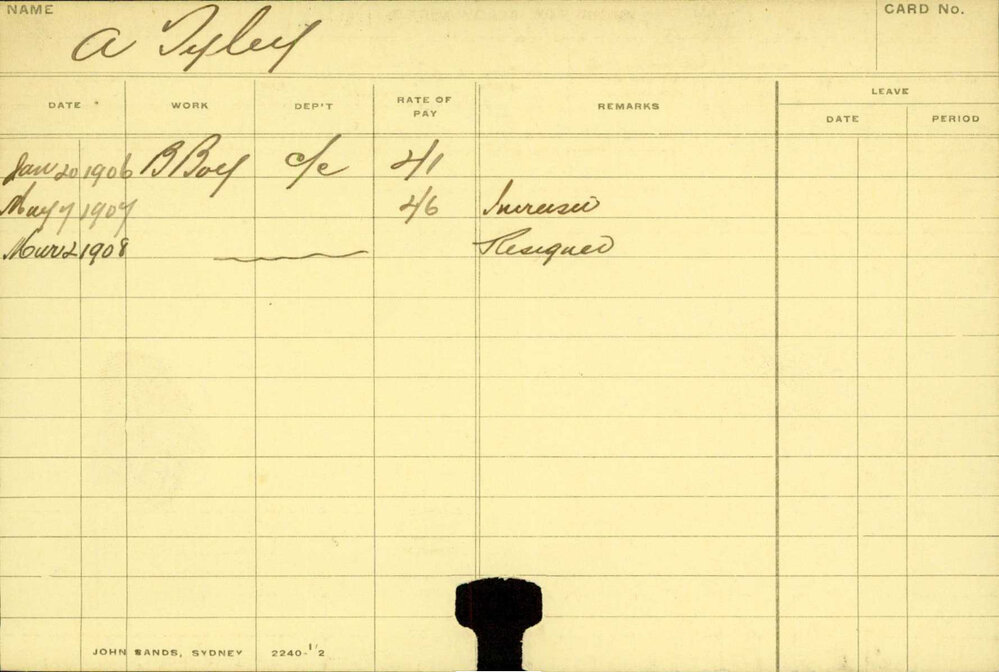 NAME
CARD No.
A Tyley
DATE WORK DEP'T RATE OF PAY REMARKS LEAVE
DATE PERIOD
Jan 20 1906 B Boy c/c 4/1
May 7 1907 4/6 Increased
Mar 2 1908 Resigned
JOHN SANDS, SYDNEY 2240-1/2